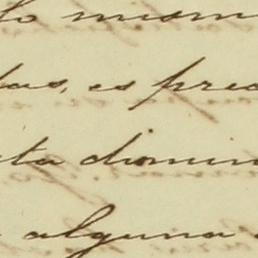 lo mism
das, es prec
sta dismin
alguna